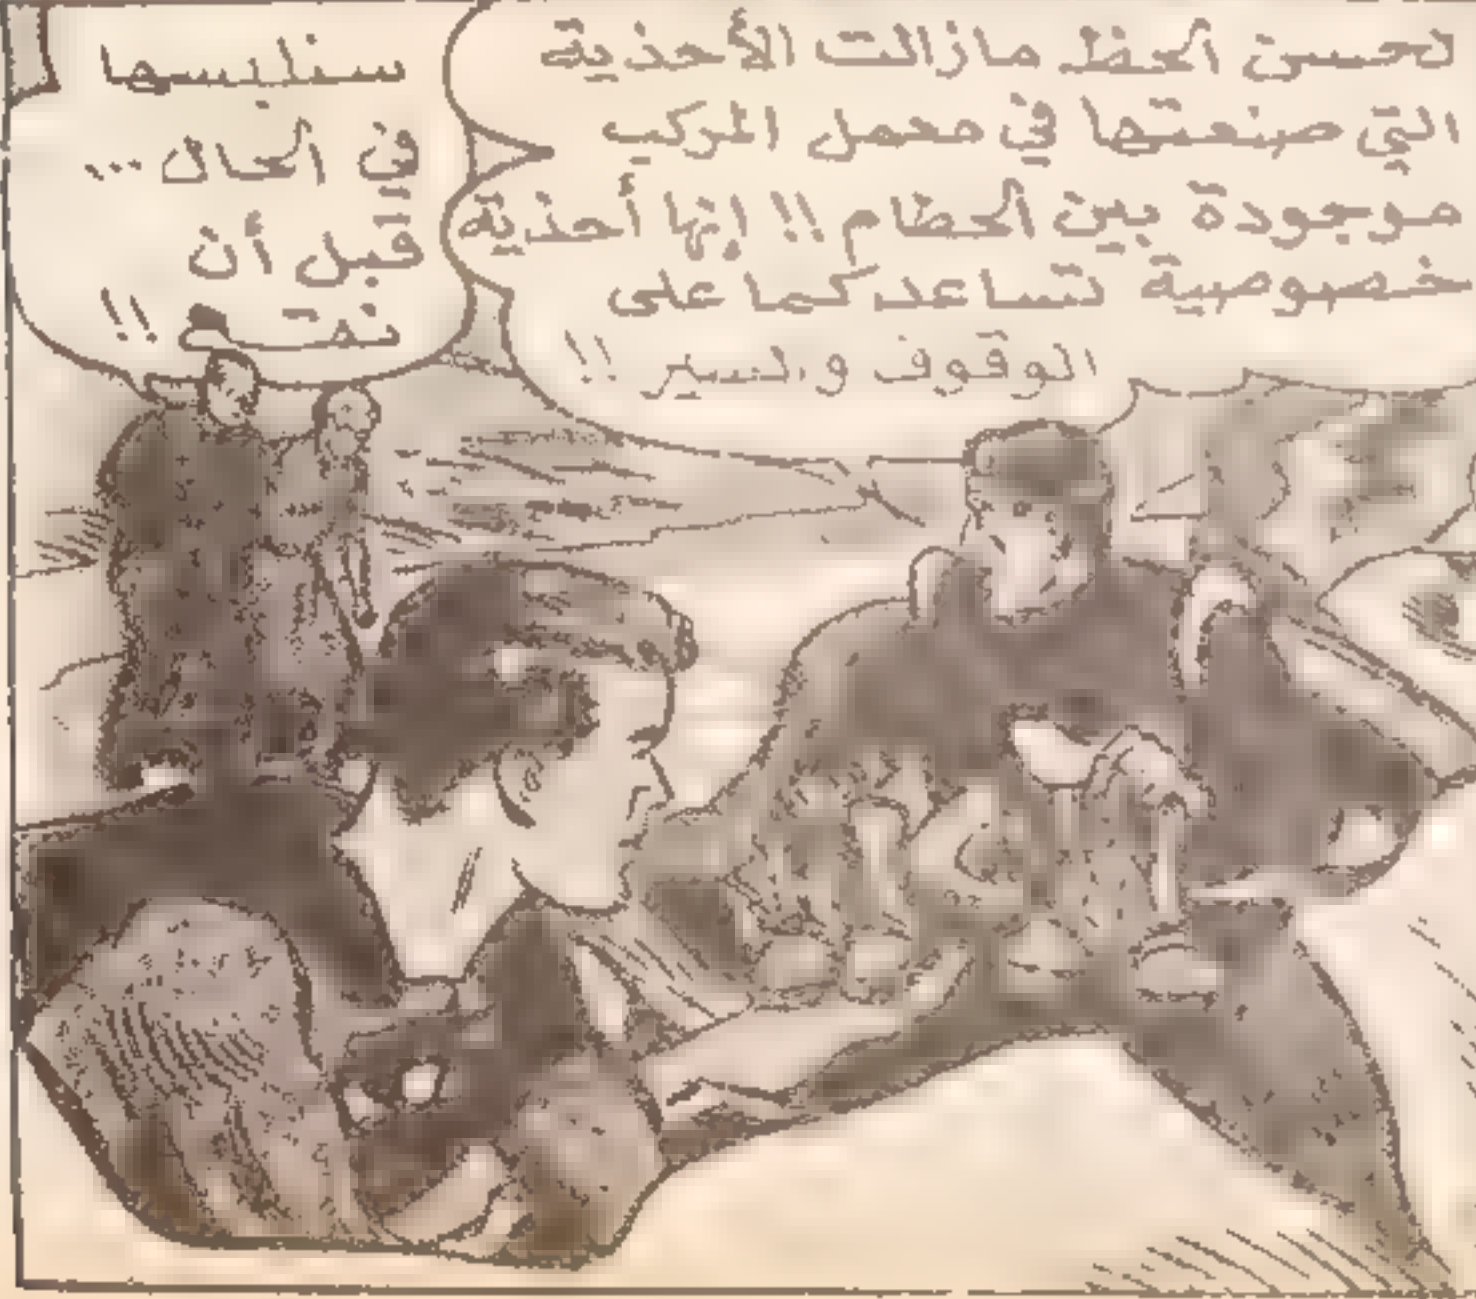 لحسن الحظ مازالت الأحذية
التي صنعتها في معمل المركب
موجودة بين الحطام !! إنها أحذية
خصوصية تساعدكما على
الوقوف والسير !!
سنلبسها
في الحال ...
قبل أن
نقع !!